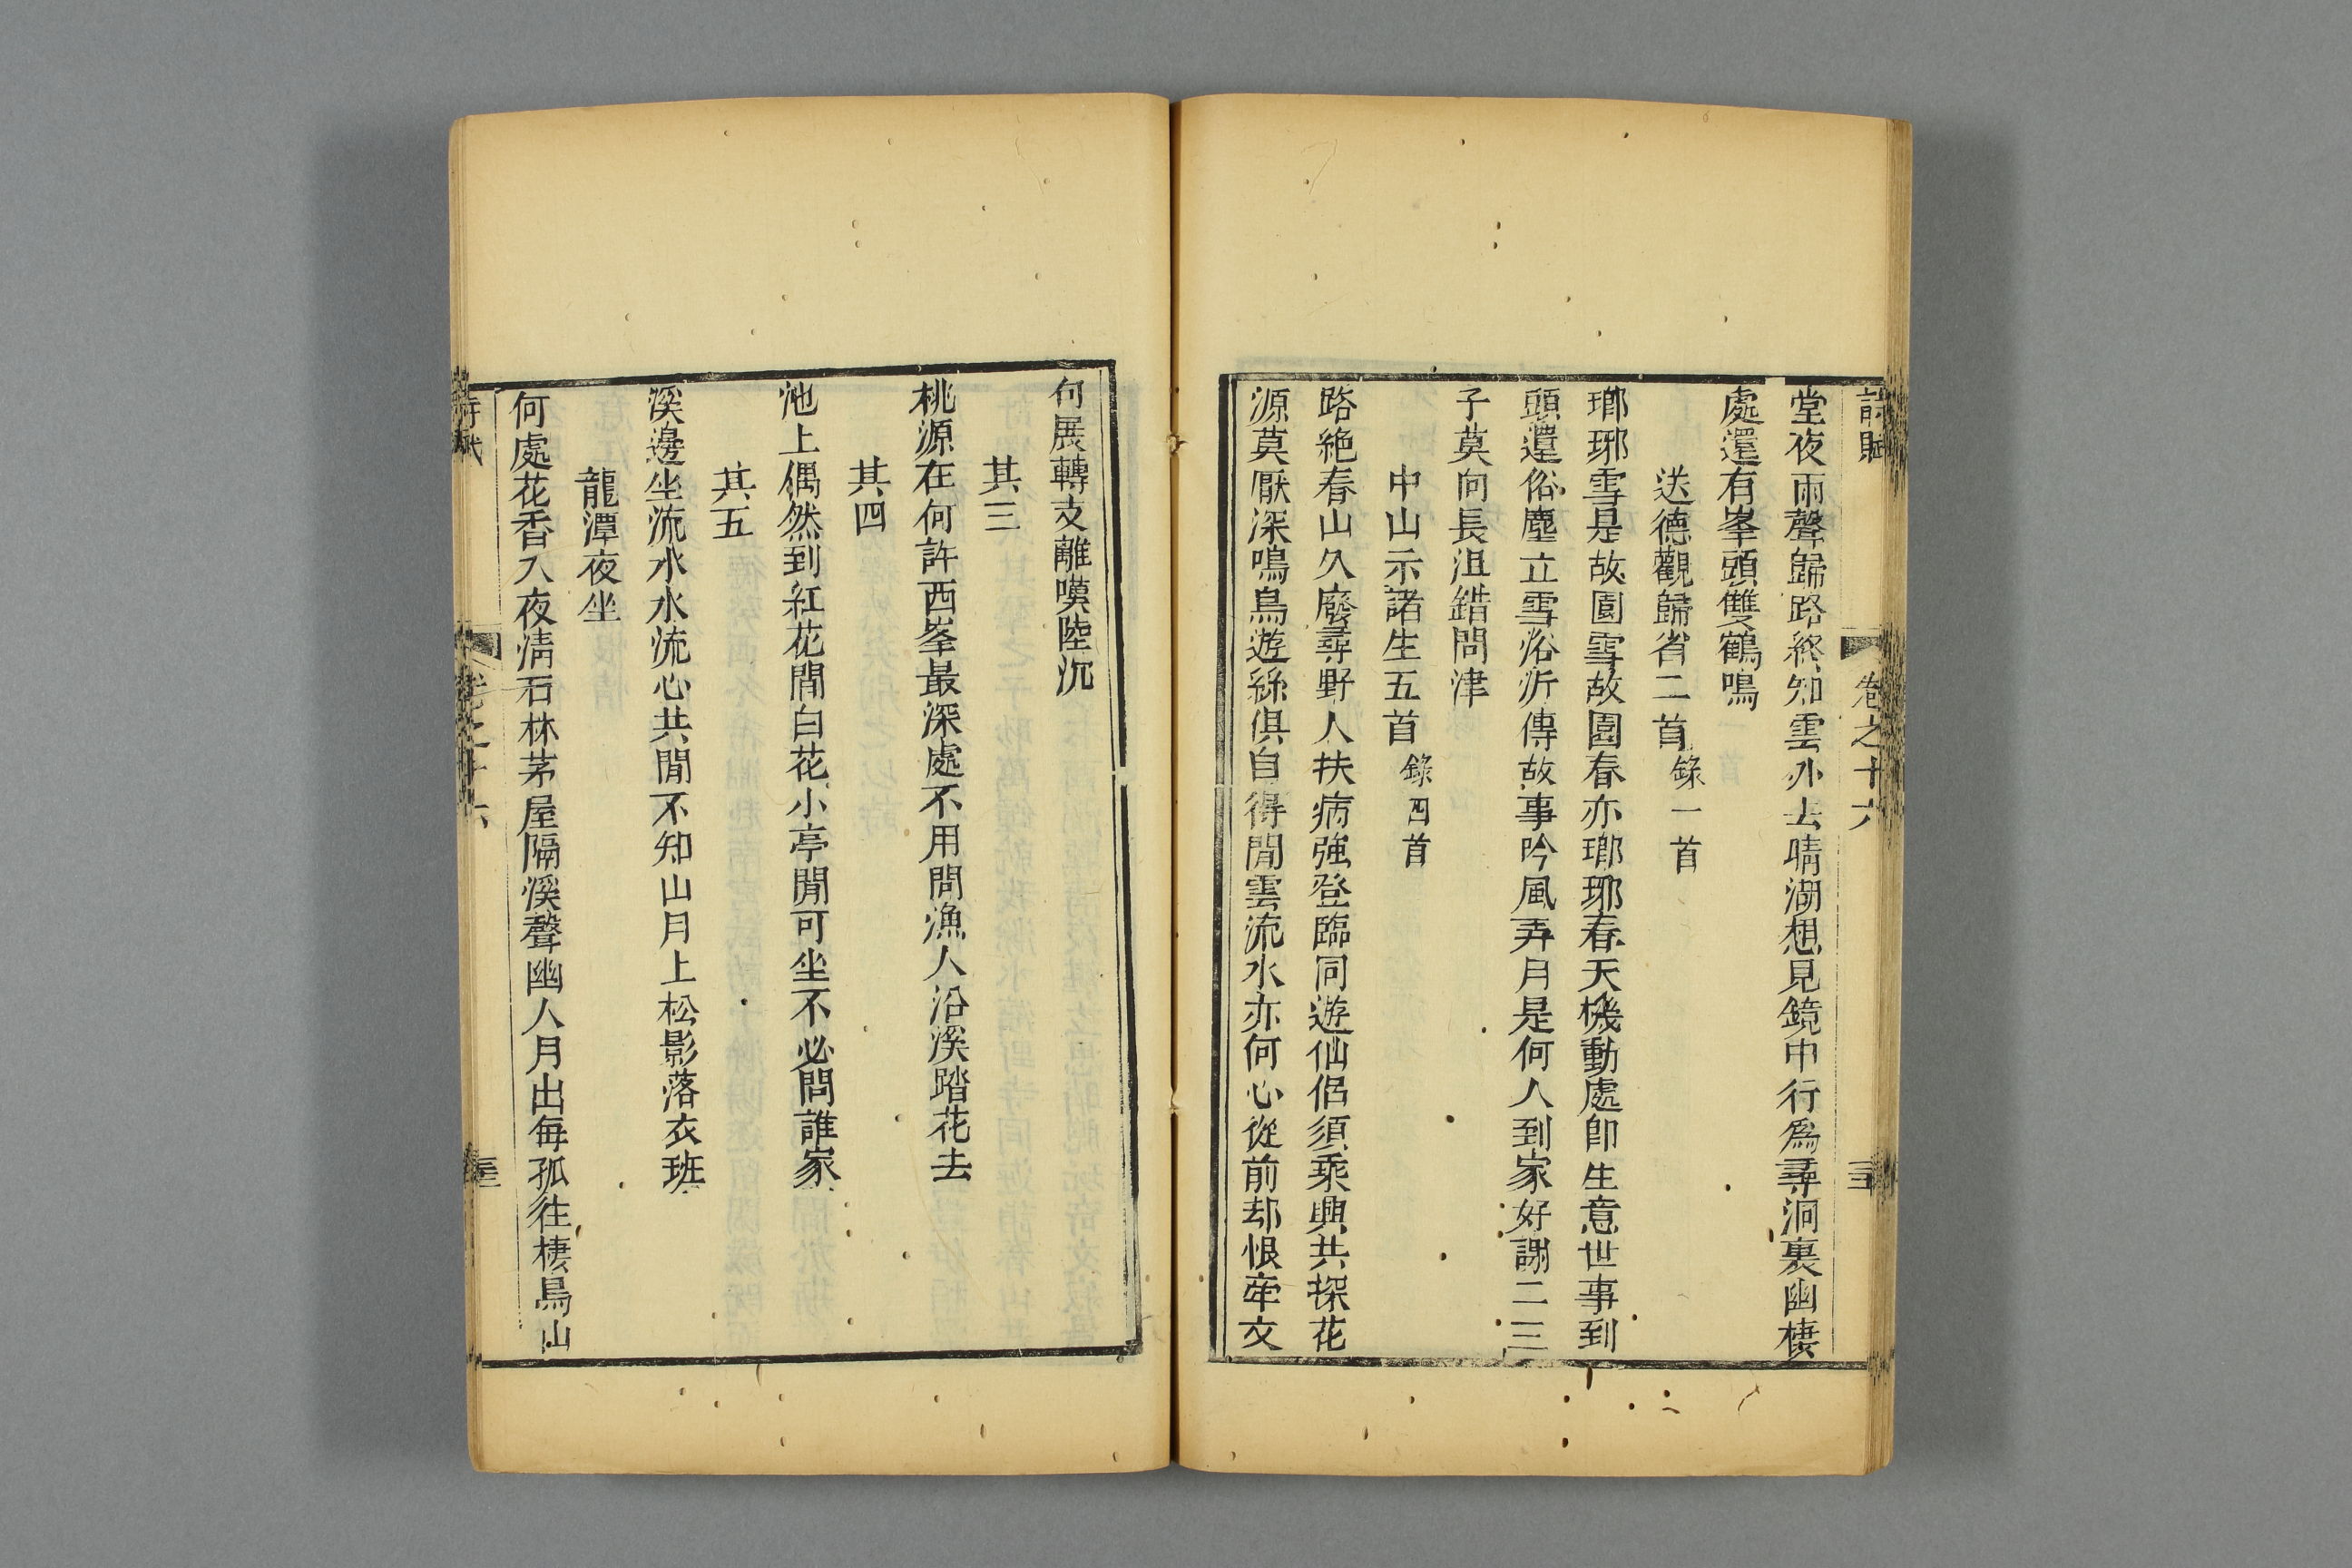 詩賦 卷之十六
堂夜雨聲歸路終知雲外去晴湖想見鏡中行爲尋洞裏幽棲
處還有峯頭雙鶴鳴
送德觀歸省二首錄一首
瑯琊雪是故園雪故園春亦瑯琊春天機動處卽生意世事到
頭還俗塵立雪浴沂傳故事吟風弄月是何人到家好謝二三
子莫向長沮錯問津
中山示諸生五首錄四首
路絶春山久廢尋野人扶病强登臨同遊仙侣須乘興共探花
源莫厭深鳴鳥遊絲俱自得閒雲流水亦何心從前却恨牽文
句展轉支離嘆陸沉
其三
桃源在何許西峯最深處不用問漁人沿溪踏花去
其四
池上偶然到紅花閒白花小亭閒可坐不必問誰家
其五
溪邊坐流水水流心共閒不知山月上松影落衣班
龍潭夜坐
何處花香入夜淸石林茅屋隔溪聲幽人月出每孤往棲鳥山
卷之十六